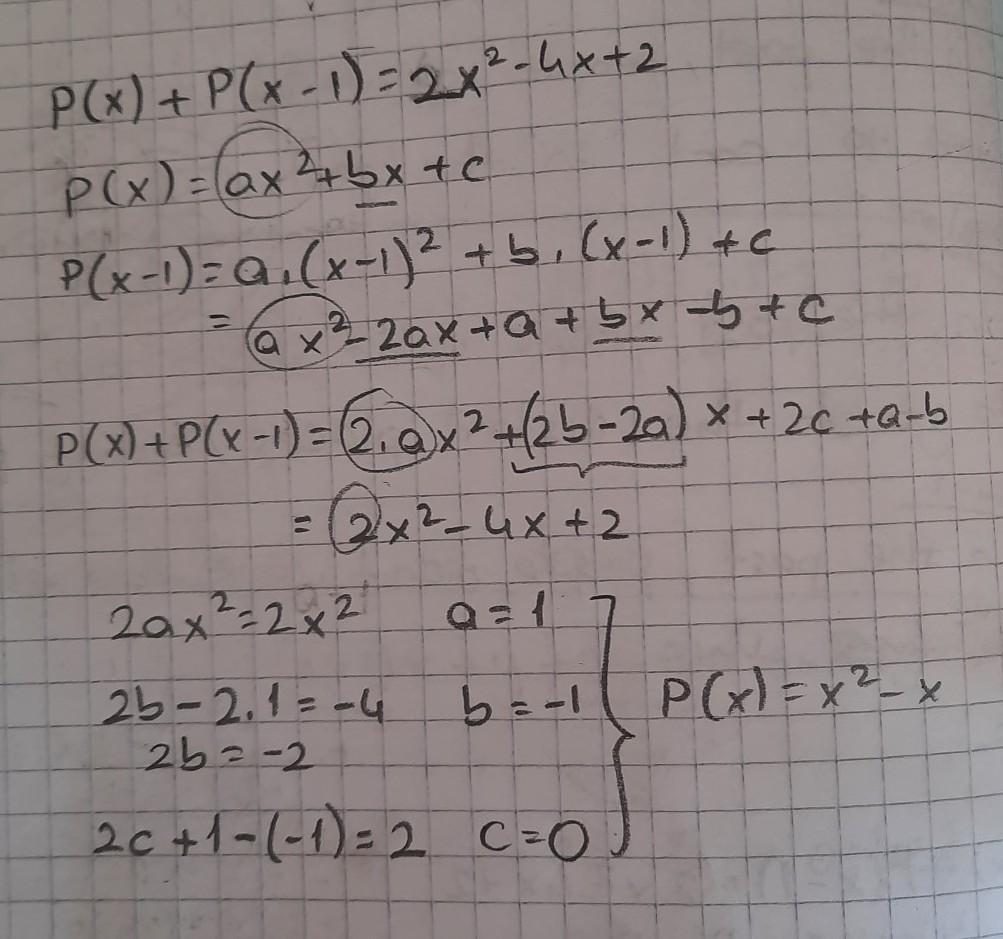 P(x) + P(x - 1) = 2x² - 4x + 2
P(x) = ax² + bx + c
P(x-1) = a.(x-1)² + b.(x-1) + c
= ax² - 2ax + a + bx - b + c
P(x) + P(x-1) = 2.ax² + (2b - 2a) x + 2c + a - b
= 2x² - 4x + 2
2ax² = 2x² a = 1
2b - 2.1 = -4 b = -1 P(x) = x² - x
2b = -2
2c + 1 - (-1) = 2 c = 0